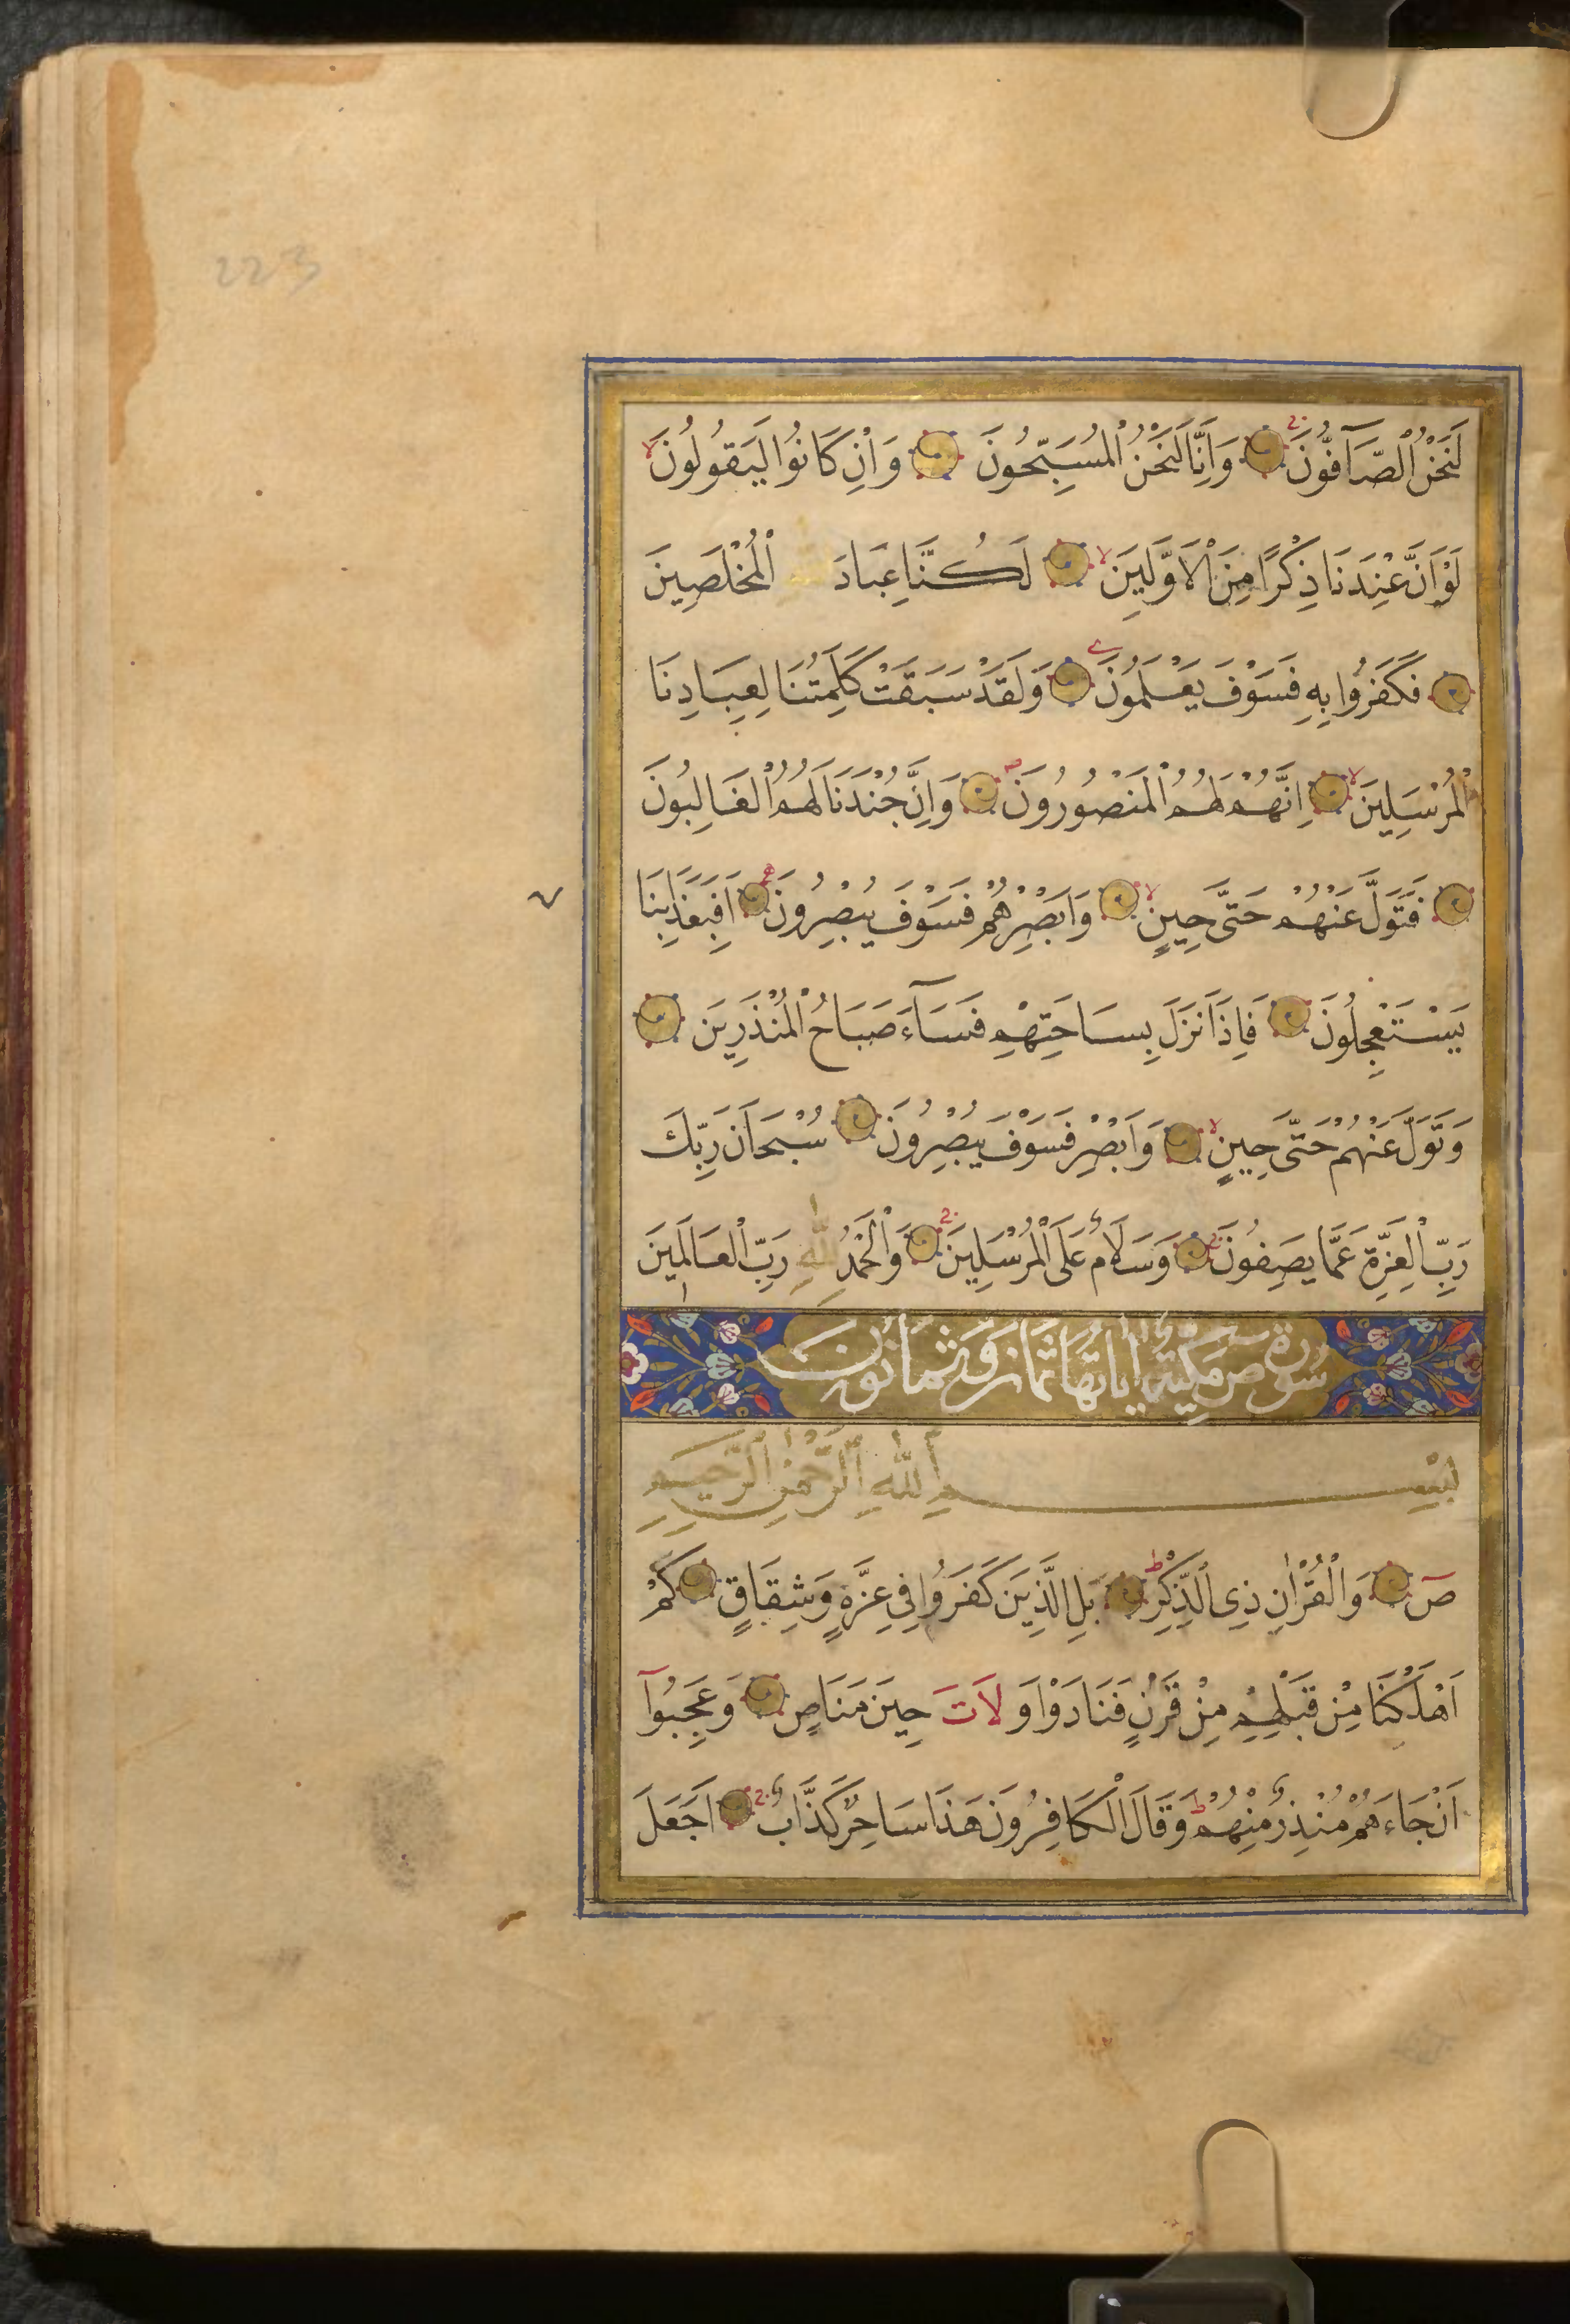 223
لَنَحْنُ الْصَّآفُّونَ وَاِنَّا لَنَحْنُ الْمُسَبِّحُونَ وَاِنْ كَانُوا لَيَقُولُونَ
لَوْ اَنَّ عِنْدَنَا ذِكْرًا مِنَ الْاَوَّلِينَ لَكُنَّا عِبَادَ الْمُخْلَصِينَ
فَكَفَرُوا بِهِ فَسَوْفَ يَعْلَمُونَ وَلَقَدْ سَبَقَتْ كَلِمَتُنَا لِعِبَادِنَا
الْمُرْسَلِينَ اِنَّهُمْ لَهُمُ الْمَنْصُورُونَ وَاِنَّ جُنْدَنَا لَهُمُ الْغَالِبُونَ
فَتَوَلَّ عَنْهُمْ حَتَّى حِينٍ وَاَبْصِرْهُمْ فَسَوْفَ يُبْصِرُونَ اَفَبِعَذَابِنَا
يَسْتَعْجِلُونَ فَاِذَا نَزَلَ بِسَاحَتِهِمْ فَسَآءَ صَبَاحُ الْمُنْذَرِينَ
وَتَوَلَّ عَنْهُمْ حَتَّى حِينٍ وَاَبْصِرْ فَسَوْفَ يُبْصِرُونَ سُبْحَانَ رَبِّكَ
رَبِّ الْعِزَّةِ عَمَّا يَصِفُونَ وَسَلَامٌ عَلَى الْمُرْسَلِينَ وَالْحَمْدُ لِلّٰهِ رَبِّ الْعَالَمِينَ
سُورَةُ ص مَكِّيَّةٌ اٰيَاتُهَا ثَمَانٌ وَثَمَانُونَ
بِسْمِ اللّٰهِ الرَّحْمٰنِ الرَّحِيمِ
صٓ وَالْقُرْاٰنِ ذِى الْذِّكْرِ بَلِ الَّذِينَ كَفَرُوا فِى عِزَّةٍ وَشِقَاقٍ كَمْ
اَهْلَكْنَا مِنْ قَبْلِهِمْ مِنْ قَرْنٍ فَنَادَوْا وَلَاتَ حِينَ مَنَاصٍ وَعَجِبُوآ
اَنْ جَاءَهُمْ مُنْذِرٌ مِنْهُمْ وَقَالَ الْكَافِرُونَ هَذَا سَاحِرٌ كَذَّابٌ اَجَعَلَ